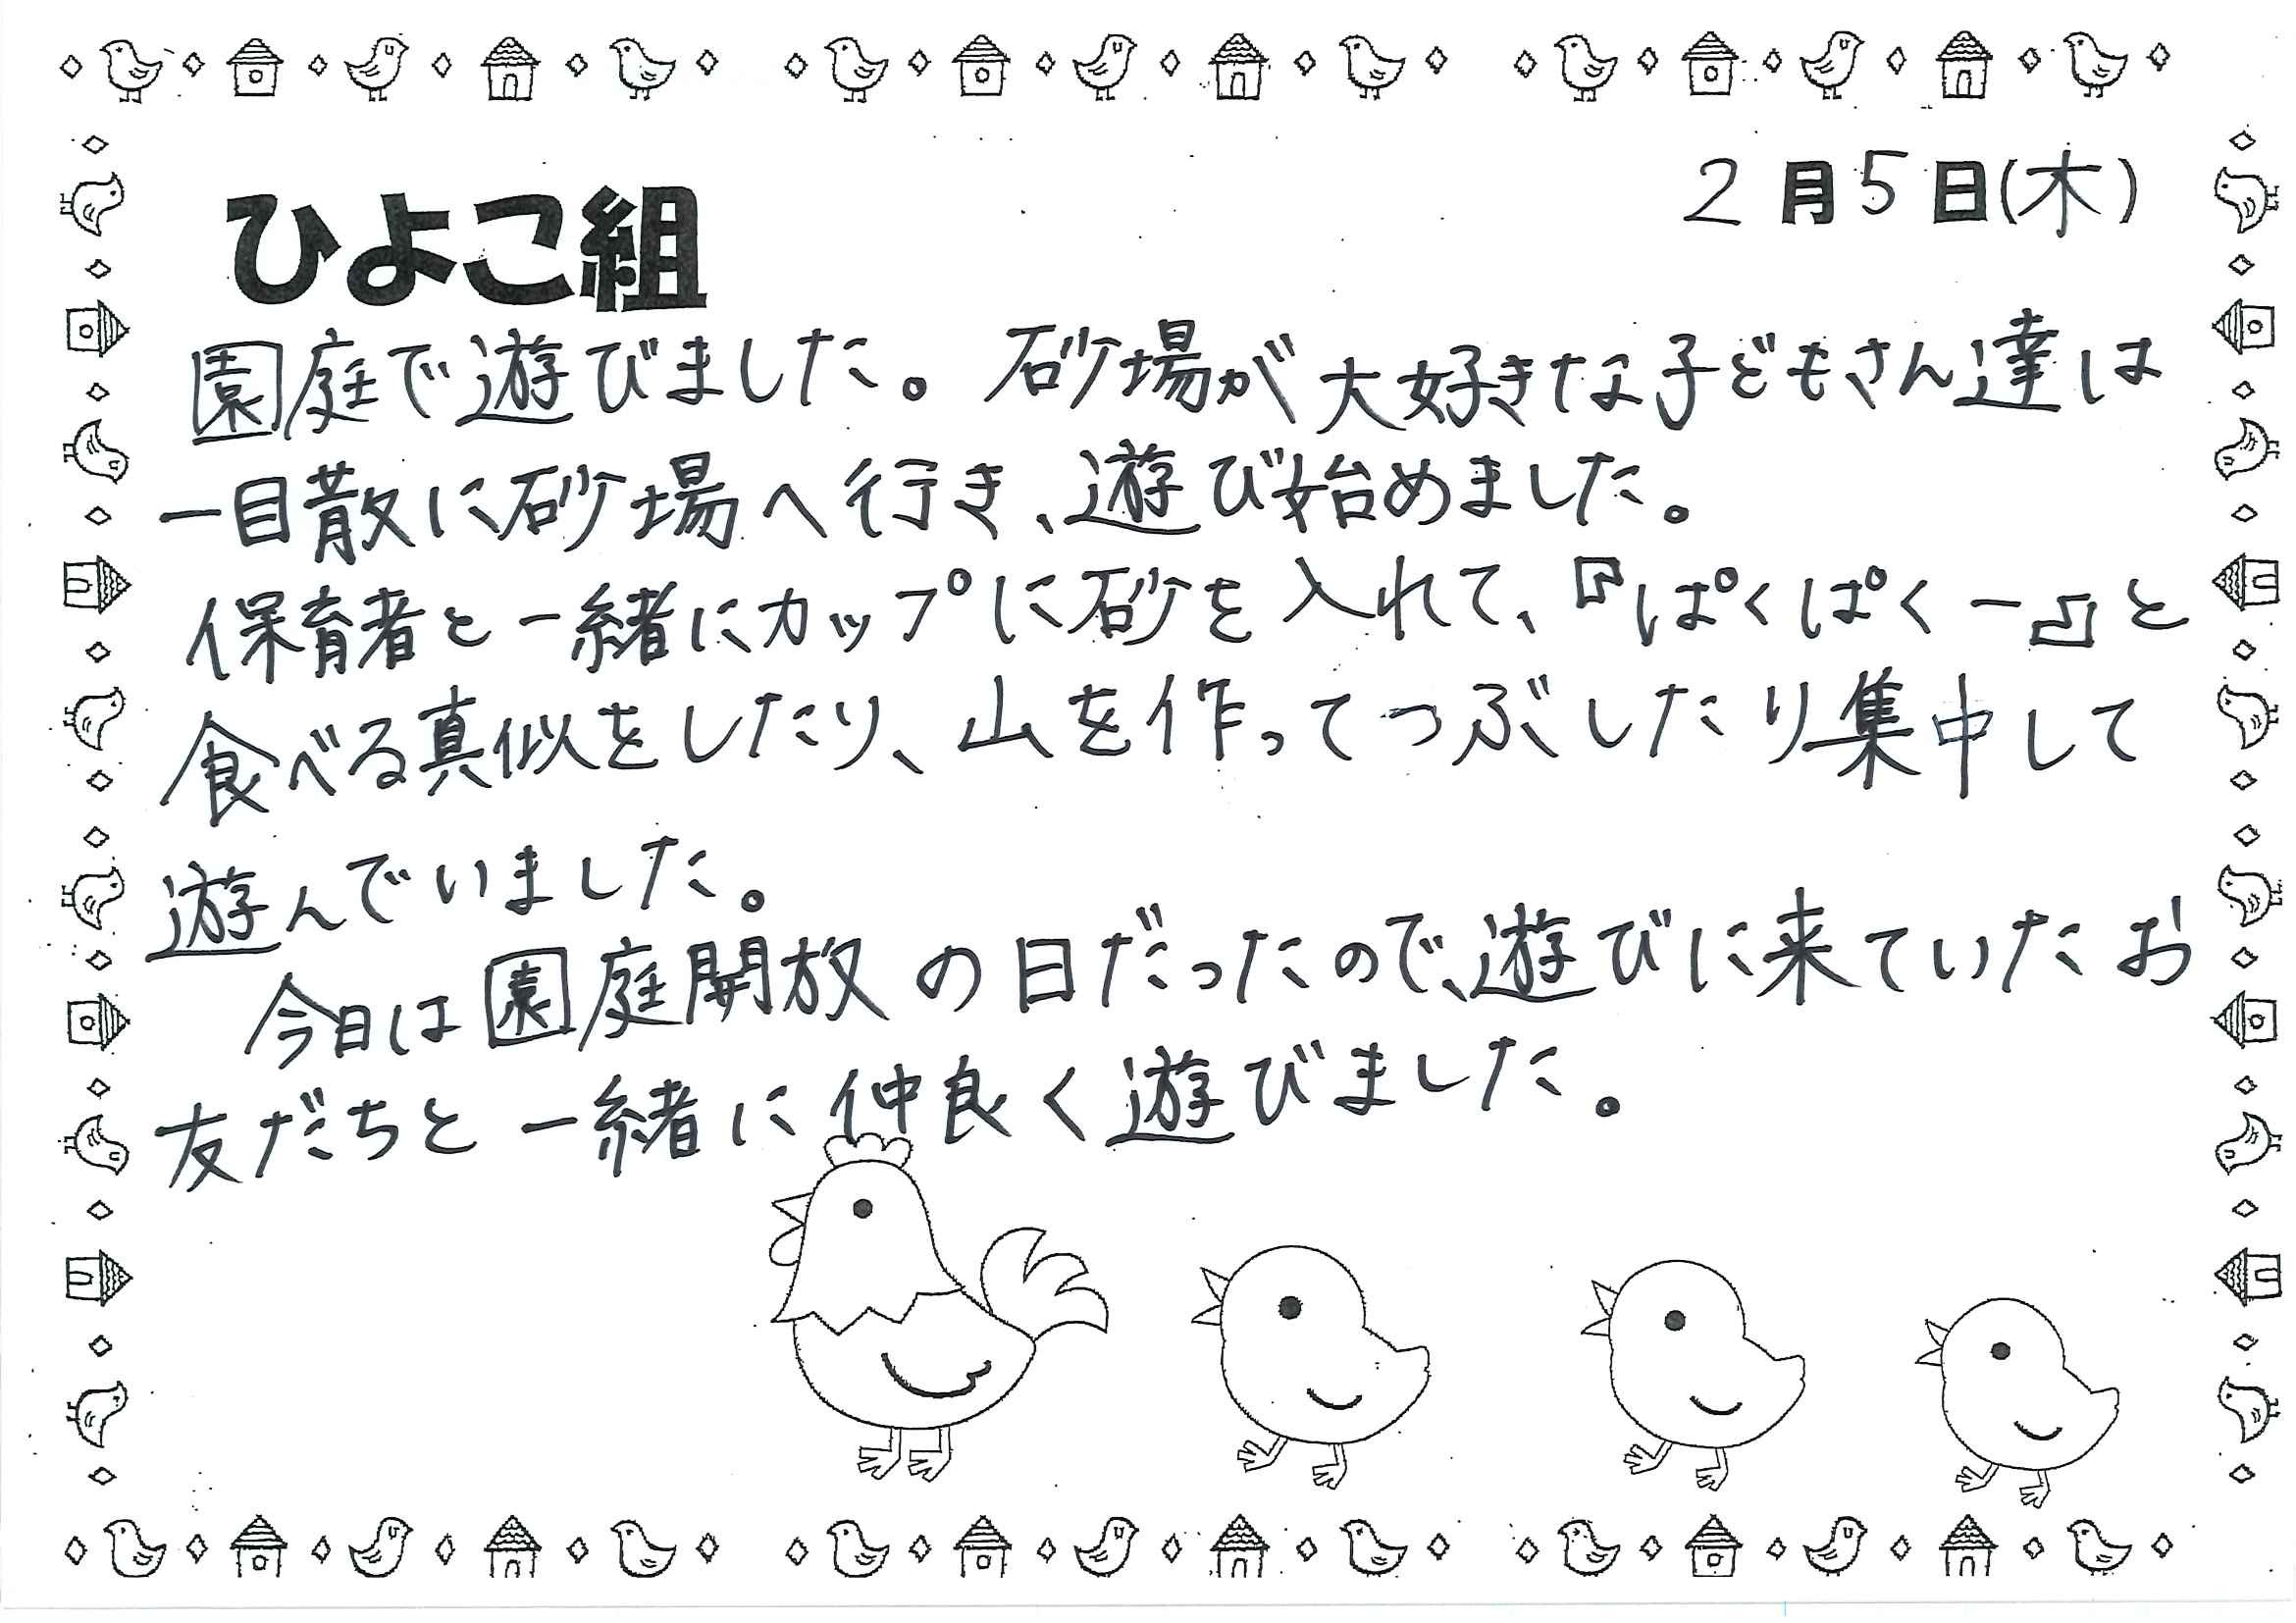 2月5日(木)
ひよこ組
園庭で遊びました。砂場が大好きな子どもさん達は
一目散に砂場へ行き、遊び始めました。
保育者と一緒にカップに砂を入れて、『ぱくぱくー』と
食べる真似をしたり、山を作ってつぶしたり集中して
遊んでいました。
今日は園庭開放の日だったので、遊びに来ていたお
友だちと一緒に仲良く遊びました。